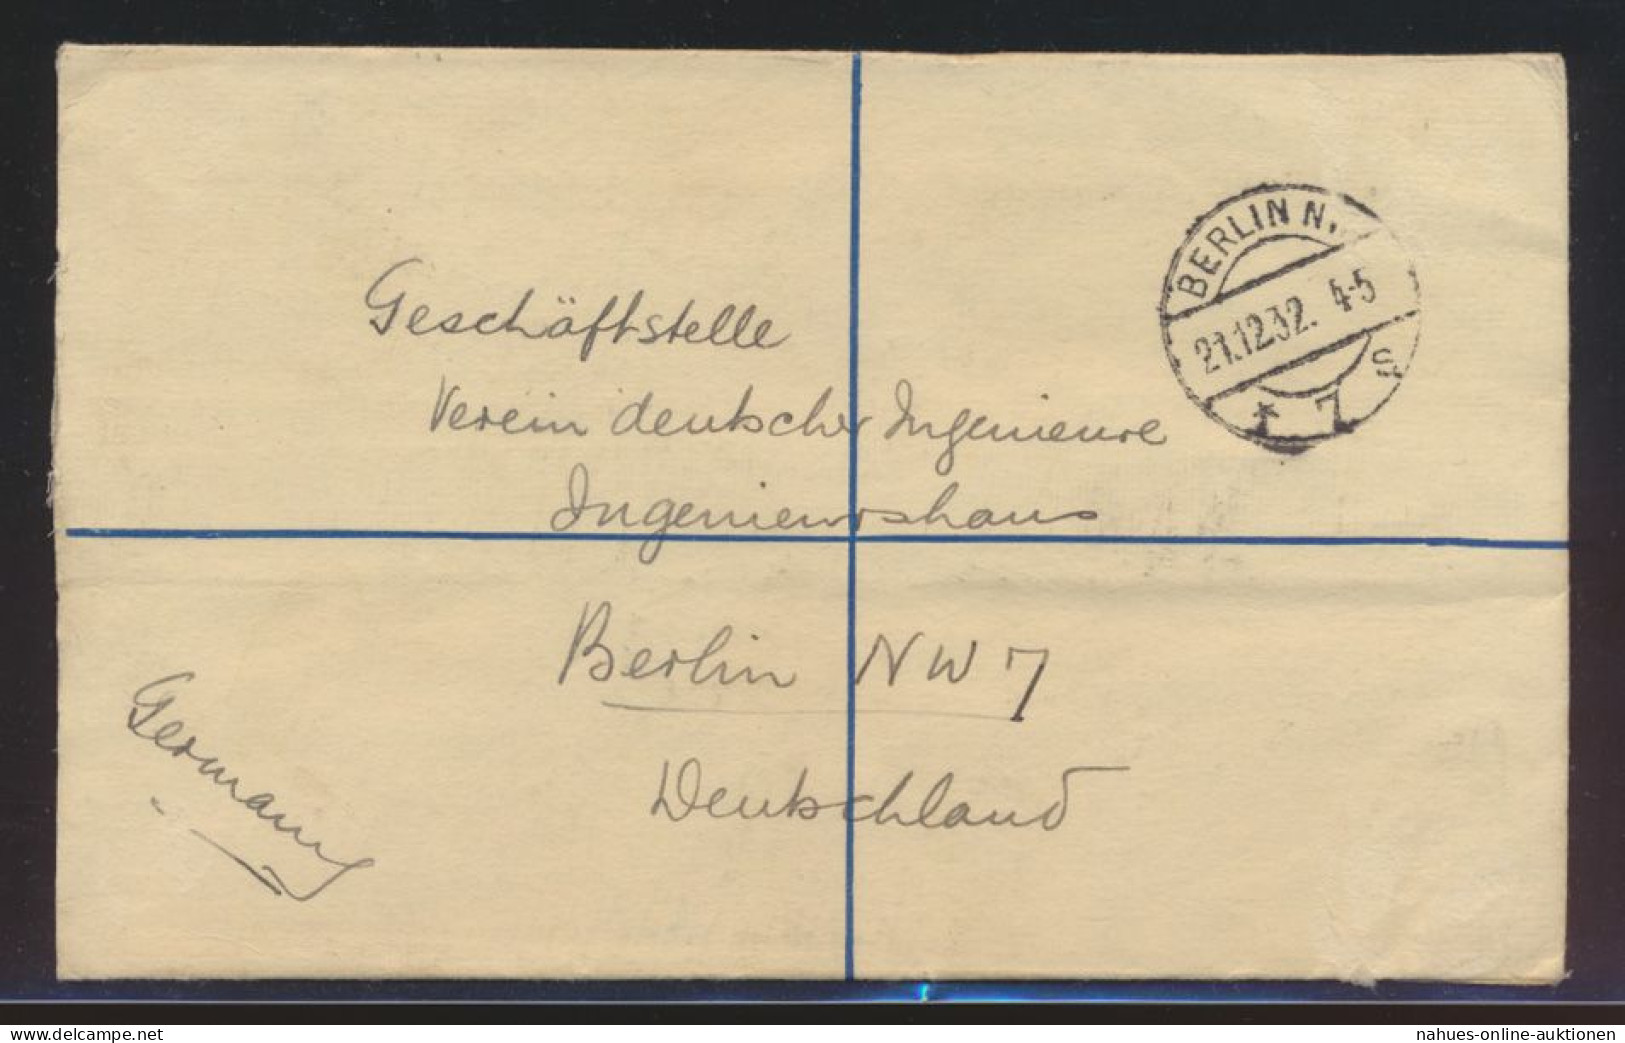 BERLIN N.
21.12.32. 4-5
* 7 s
Geschäftstelle
Verein deutscher Ingenieure
Ingenieurshaus
Berlin NW 7
Deutschland
Germany
delcampe.net
nahues-online-auktionen